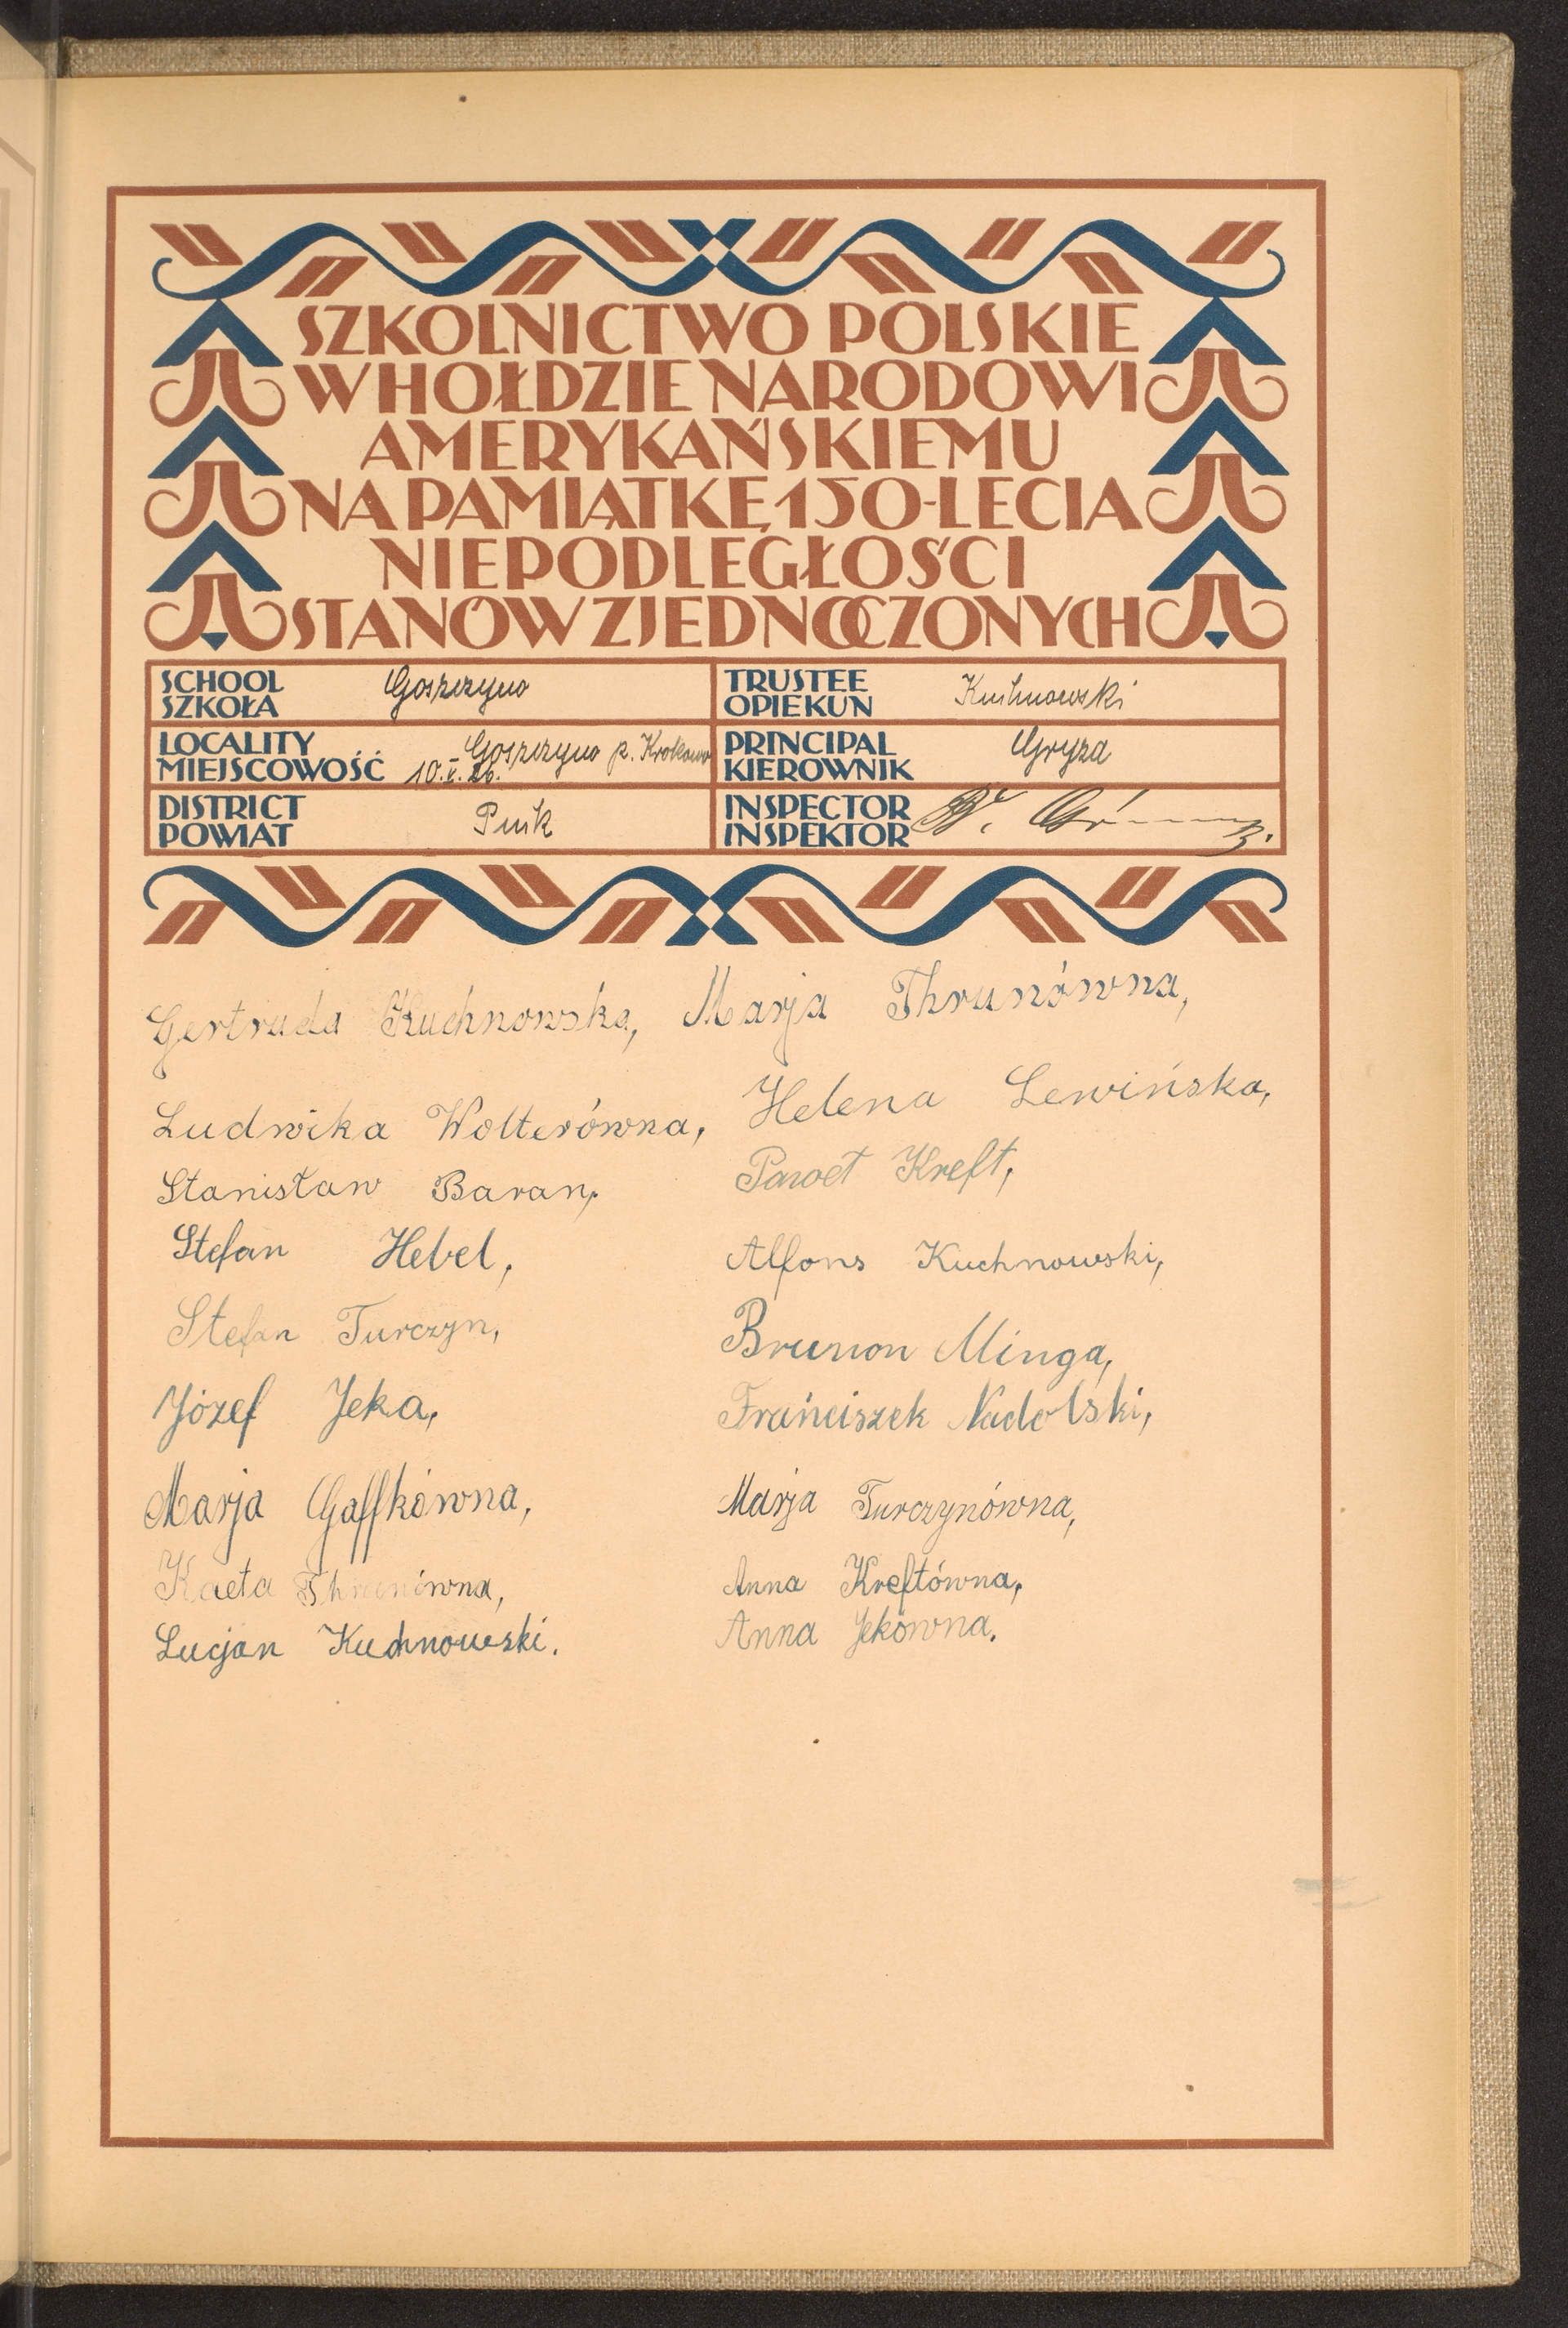 SZKOLNICTWO POLSKIE
W HOŁDZIE NARODOWI
AMERYKAŃSKIEMU
NA PAMIĄTKĘ 150-LECIA
NIEPODLEGŁOŚCI
STANÓW ZJEDNOCZONYCH
SCHOOL
SZKOŁA
Goszczyno
TRUSTEE
OPIEKUN
Kuchnowski
LOCALITY
MIEJSCOWOŚĆ
Goszczyno p. Krokowo
10.V.26.
PRINCIPAL
KIEROWNIK
Gryza
DISTRICT
POWIAT
Puck
INSPECTOR
INSPEKTOR
Gertruda Kuchnowska, Marja Thrunówna,
Ludwika Wolterówna, Helena Lewińska,
Stanisław Baran, Paweł Kreft,
Stefan Hebel, Alfons Kuchnowski,
Stefan Turczyn, Brunon Minga,
Józef Jeka, Frańciszek Nadolski,
Marja Gaffkówna, Marja Turczynówna,
Kaeta Thrunówna, Anna Kreftówna,
Lucjan Kuchnowski. Anna Jekówna.